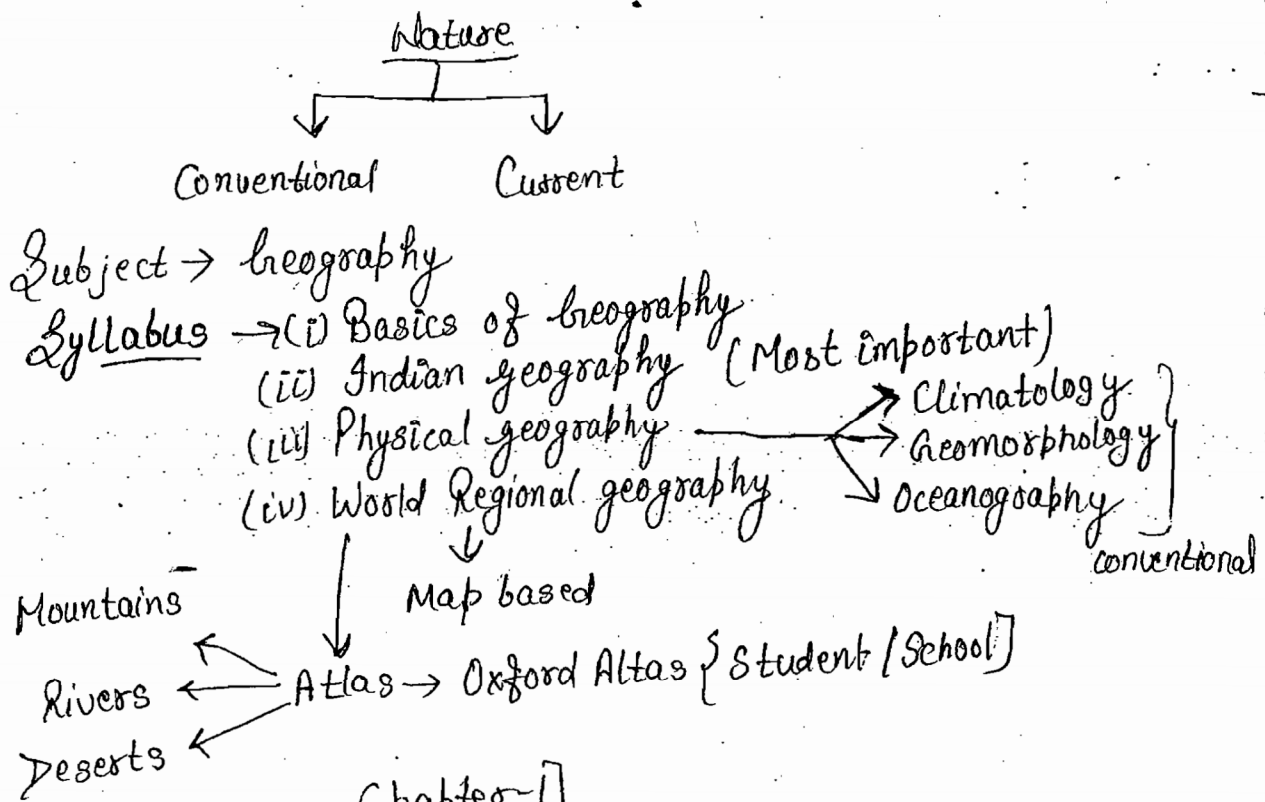 Nature
Conventional Current
Subject → Geography
Syllabus → (i) Basics of Geography
(ii) Indian geography (Most important)
(iii) Physical geography → Climatology
→ Geomorphology
→ Oceanography
conventional
(iv) World Regional geography
Map based
Mountains
Rivers
Deserts
Atlas → Oxford Altas {Student / School]
Chapter-1]